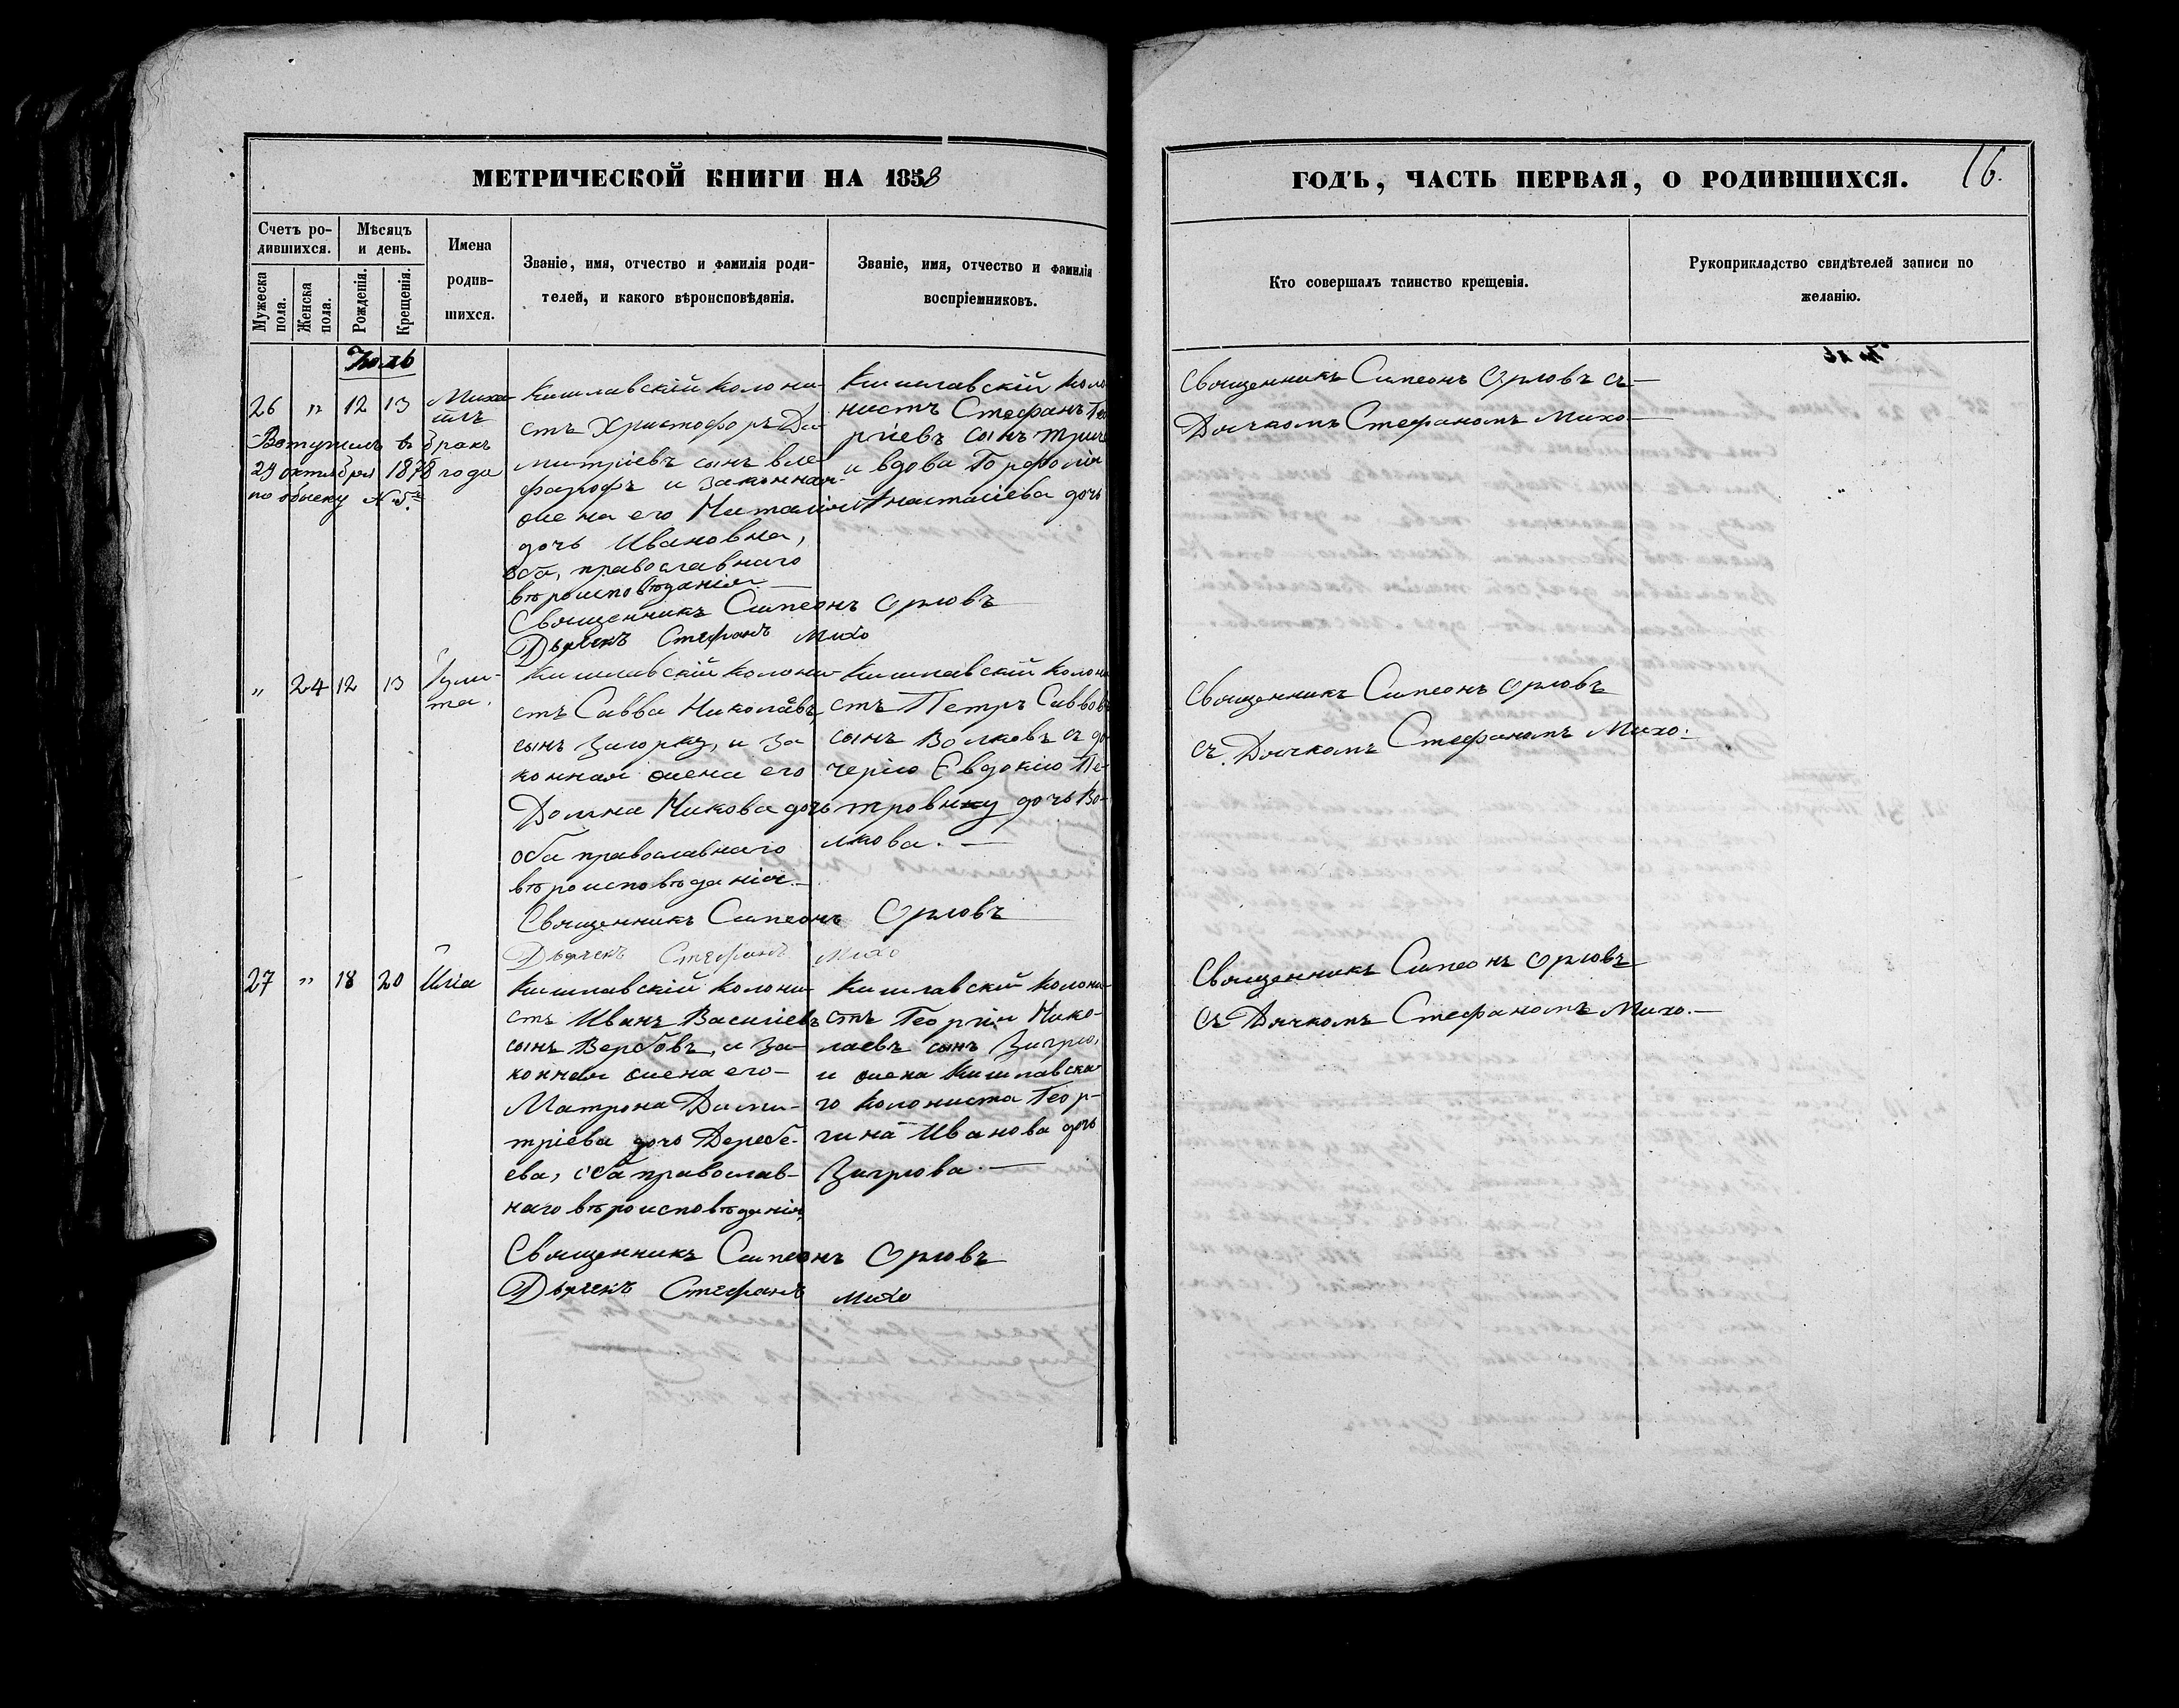 МЕТРИЧЕСКОЙ КНИГИ НА 1858
Счетъ ро-
дившихся.
Мѣсяцъ
и день.
Мужеска
пола.
Женска
пола.
Рожденія.
Крещенія.
Имена
родив-
шихся.
Званіе, имя, отчество и фамилія роди-
телей, и какого вѣроисповѣданія.
Званіе, имя, отчество и фамилія
воспріемниковъ.
Іюль
26 " 12 13 Миха-
илъ
Вступилъ в бракъ
29 октября 1878 года
по обыску №
Кишлавскій колони-
стъ Христофоръ Ди-
митріевъ сынъ
и законная
жена его Наталія
дочь Ивановна,
оба, православнаго
вѣроисповѣданія
Кишлавскій коло
нистъ Стефанъ Гео
ргіевъ сынъ
и вдова
Анастасіева дочь
Священникъ Симеонъ Орловъ
Дьячекъ Стефанъ Михо
" 24 12 13 Іули-
та.
Кишлавскій колони-
стъ Савва Николаевъ
сынъ и за
конная жена его
Домна Никова дочь
оба православнаго
вѣроисповѣданія.
Кишлавскій колони
стъ Петръ Саввовъ
сынъ Волковъ съ до
черію Евдокію Пе-
тровну дочь Во-
лкова.
Священникъ Симеонъ Орловъ
Дьячекъ Стефанъ Михо
27 " 18 20 Илія
Кишлавскій колони-
стъ Иванъ Василіевъ
сынъ Вербовъ, и за-
конная жена его
Матрона Дими-
тріева дочь Деребе-
ева, оба православ-
наго вѣроисповѣданія,
Кишлавскій колони
стъ Георгій Нико-
лаевъ сынъ
и жена Кишлавска
го колониста Геор-
гина Иванова дочь
Священникъ Симеонъ Орловъ
Дьячекъ Стефанъ Михо
ГОДЪ, ЧАСТЬ ПЕРВАЯ, О РОДИВШИХСЯ.
16.
Кто совершалъ таинство крещенія.
Рукоприкладство свидѣтелей записи по
желанію.
Священникъ Симеонъ Орловъ съ
Дячкомъ Стефаномъ Михо
Священникъ Симеонъ Орловъ
съ Дячкомъ Стефаномъ Михо.
Священникъ Симеонъ Орловъ
съ Дячкомъ Стефаномъ Михо.